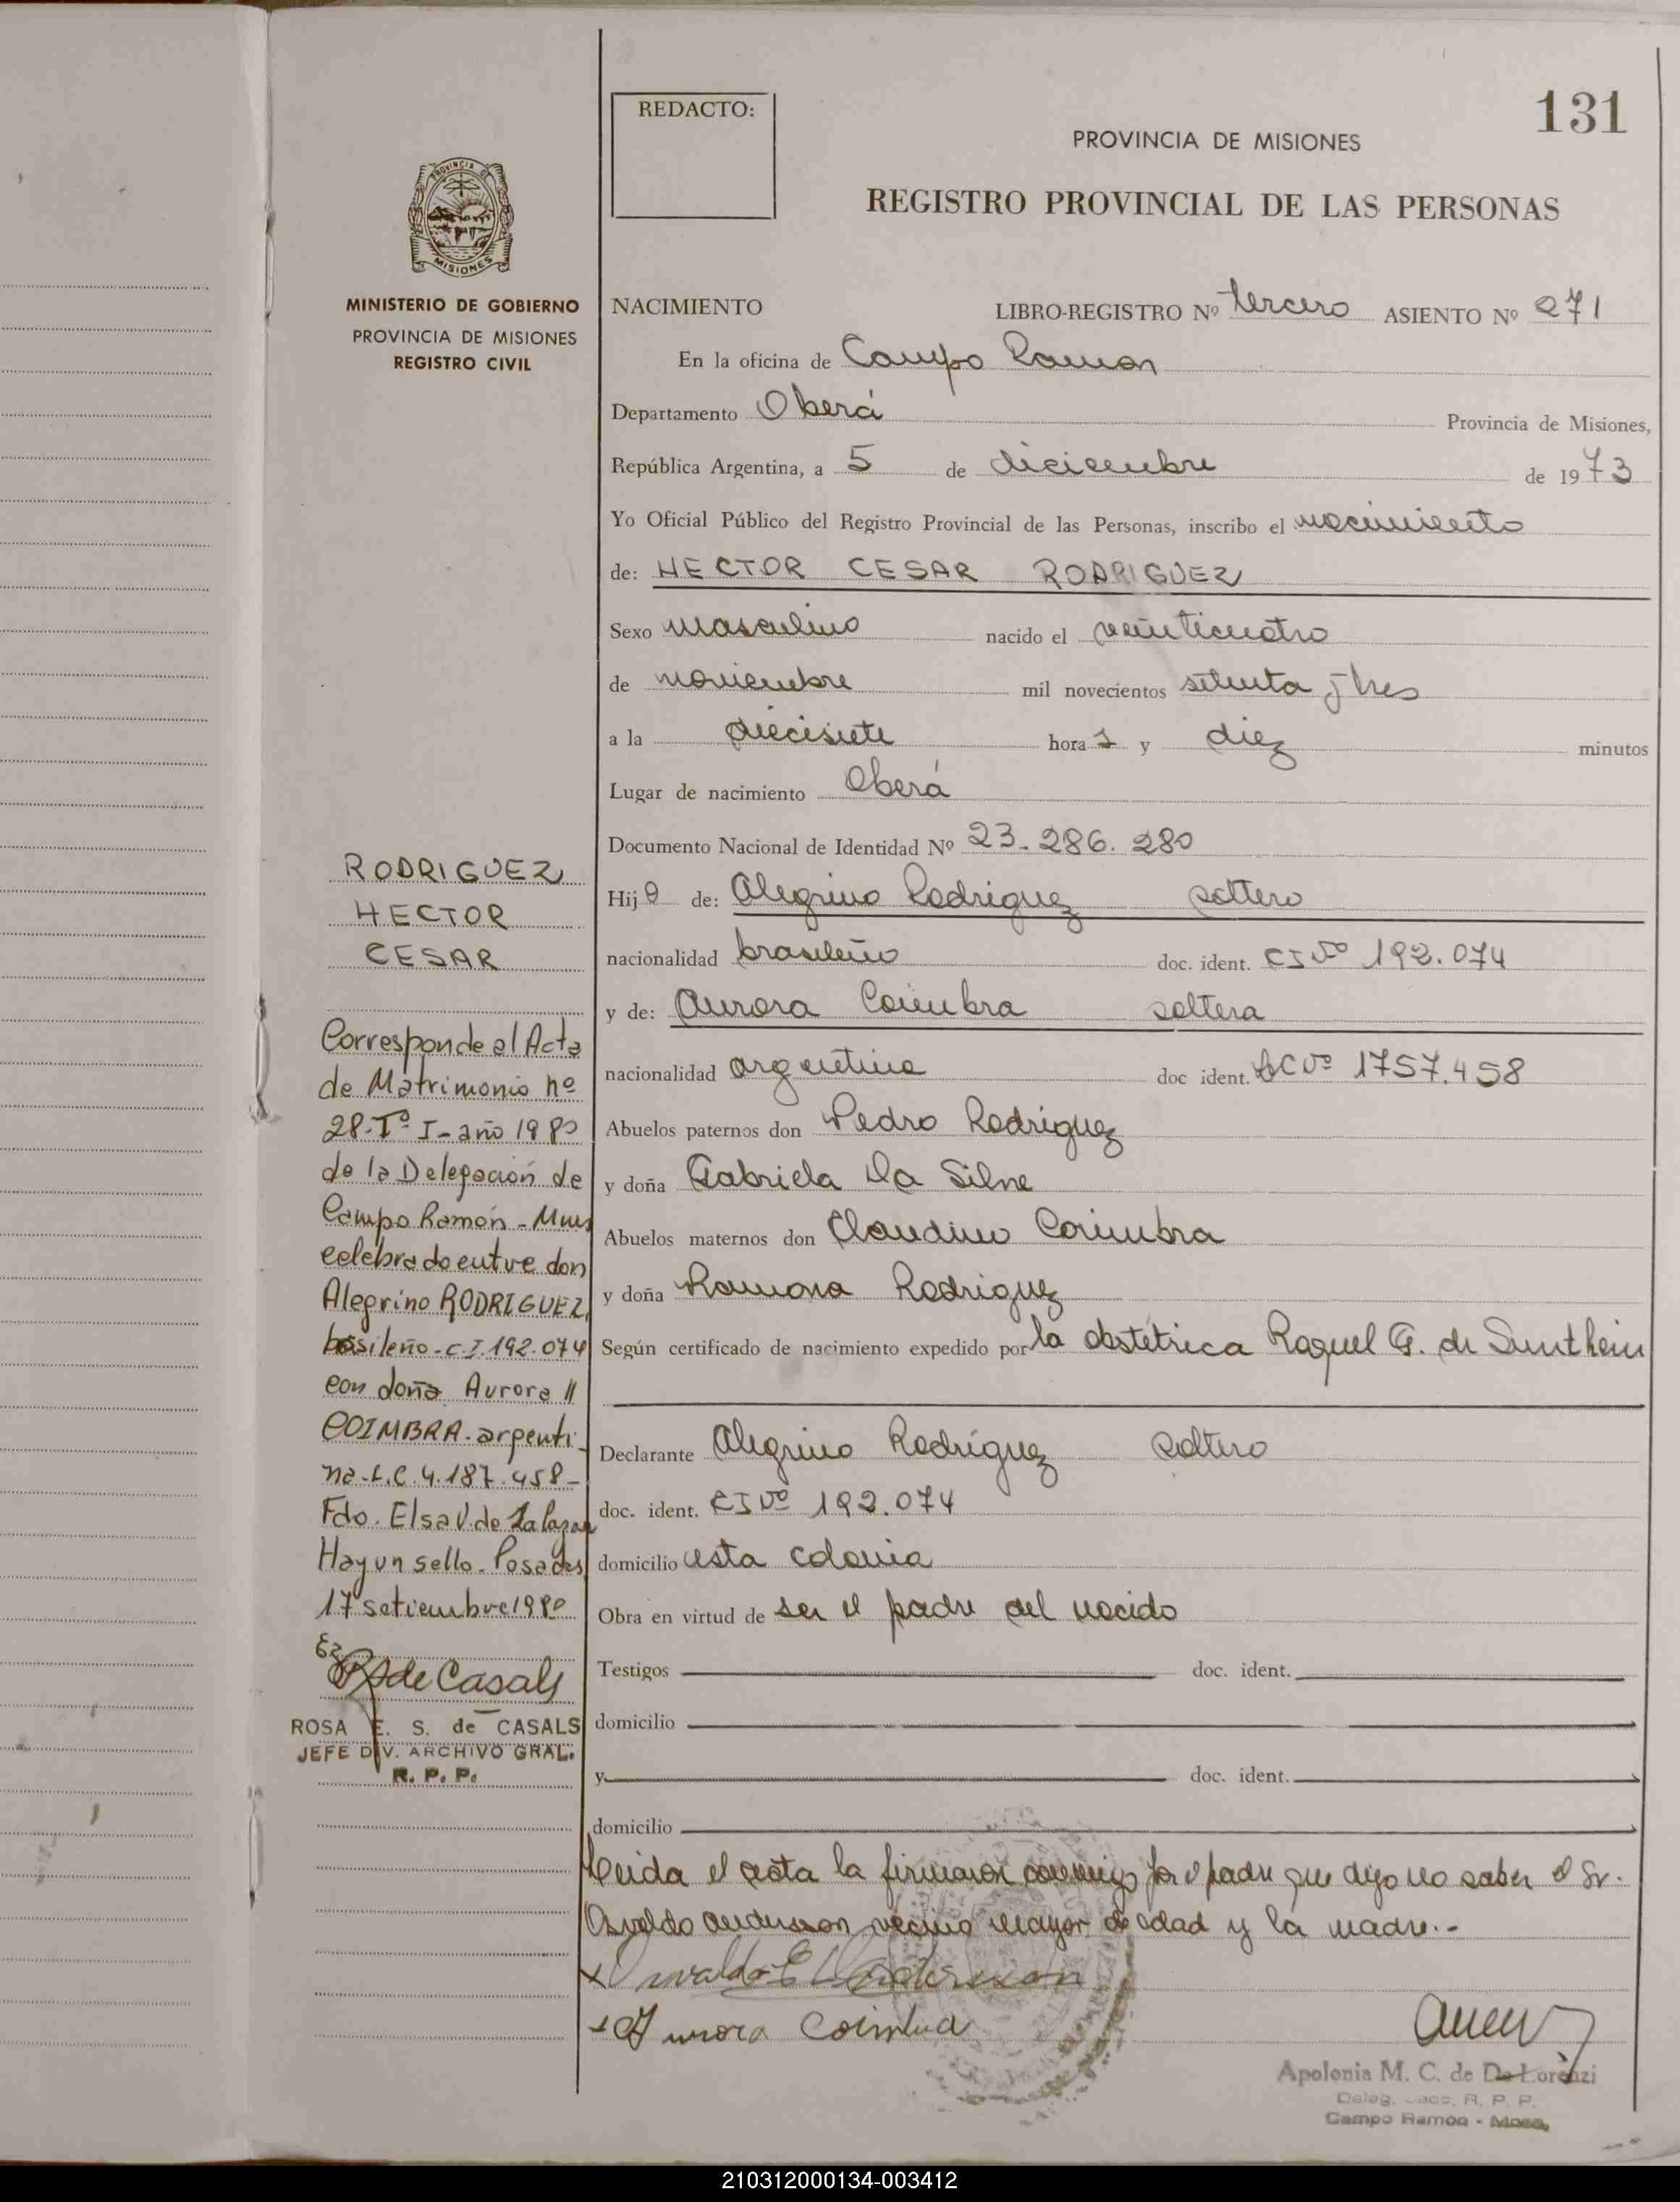 131
REDACTO:
PROVINCIA DE MISIONES
REGISTRO PROVINCIAL DE LAS PERSONAS
PROVINCIA DE
MISIONES
MINISTERIO DE GOBIERNO
PROVINCIA DE MISIONES
REGISTRO CIVIL
NACIMIENTO LIBRO-REGISTRO Nº tercero ASIENTO Nº 271
En la oficina de Campo Ramon
Departamento Oberá Provincia de Misiones,
República Argentina, a 5 de diciembre de 1973
Yo Oficial Público del Registro Provincial de las Personas, inscribo el nacimiento
de: HECTOR CESAR RODRIGUEZ
Sexo masculino nacido el veinticuatro
de noviembre mil novecientos setenta y tres
a la diecisiete horas y diez minutos
Lugar de nacimiento Oberá
Documento Nacional de Identidad Nº 23.286.280
Hijo de: Alegrino Rodriguez soltero
nacionalidad brasileño doc. ident. CI Nº 192.074
y de: Aurora Coimbra soltera
nacionalidad argentina doc ident. LC Nº 1757.458
Abuelos paternos don Pedro Rodriguez
y doña Gabriela Da Silva
Abuelos maternos don Claudino Coimbra
y doña Ramona Rodriguez
Según certificado de nacimiento expedido por la obstétrica Raquel G. de
Declarante Alegrino Rodríguez soltero
doc. ident. CI Nº 192.074
domicilio esta colonia
Obra en virtud de ser el padre del nacido
Testigos doc. ident.
domicilio
y doc. ident.
domicilio
Leida el acta la firmaron conmigo por el padre que dijo no saber el Sr.
Osvaldo Andersson vecino mayor de edad y la madre.-
Osvaldo E Andersson
Aurora Coimbra
Apolonia M. C. de De Lorenzi
Deleg. R. P. P.
Campo Ramon - Mnes.
RODRIGUEZ
HECTOR
CESAR
Corresponde al Acta
de Matrimonio nº
28-Tº I-año 1980
de la Delegación de
Campo Ramón - Mnes
celebrado entre don
Alegrino RODRIGUEZ,
brasileño-C.I.192.074
con doña Aurora //
COIMBRA-argenti-
na-L.C.4.187.458-
Fdo. Elsa V. de Zalazar
Hay un sello-Posadas,
17 setiembre 1980
RS de Casals
ROSA E. S. de CASALS
JEFE DIV. ARCHIVO GRAL.
R. P. P.
210312000134-003412